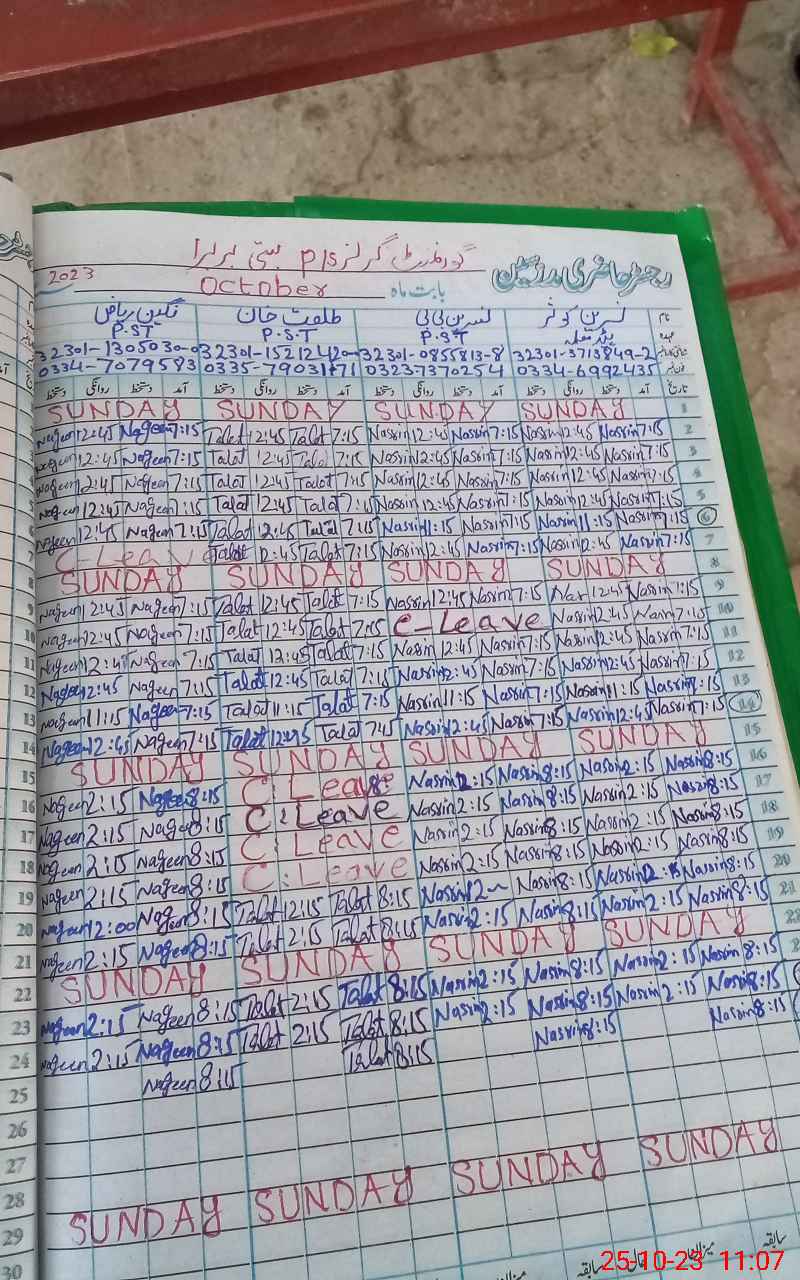 گورنمنٹ گرلز p/s بستی
رجسٹر حاضری مدرسین
بابت ماہ October 2023
نام نسرین کوثر نسرین بی بی طلعت خان نگین ریاض
عہدہ P.ST P.S.T P.ST
32301-3713849-2 32301-0855813-8 32301-1521242 32301-1305030-0
0334-6992435 0323-7370254 0335-7903171 0334-7079583
تاریخ آمد دستخط روانگی دستخط آمد دستخط روانگی دستخط آمد دستخط روانگی دستخط آمد دستخط روانگی دستخط
SUNDAY SUNDAY SUNDAY SUNDAY 1
Nageen 12:45 Nageen 7:15 Talat 12:45 Talat 7:15 Nasrin 12:45 Nasrin 7:15 Nasrin 12:45 Nasrin 7:15 2
Nageen 12:45 Nageen 7:15 Talat 12:45 Talat 7:15 Nasrin 12:45 Nasrin 7:15 Nasrin 12:45 Nasrin 7:15 3
Nageen 12:45 Nageen 7:15 Talat 12:45 Talat 7:15 Nasrin 12:45 Nasrin 7:15 Nasrin 12:45 Nasrin 7:15 4
Nageen 12:45 Nageen 7:15 Talat 12:45 Talat 7:15 Nasrin 12:45 Nasrin 7:15 Nasrin 12:45 Nasrin 7:15 5
Nageen 12:45 Nageen 7:15 Talat 12:45 Talat 7:15 Nasrin 11:15 Nasrin 7:15 Nasrin 11:15 Nasrin 7:15 6
C-Leave Talat 12:45 Talat 7:15 Nasrin 12:45 Nasrin 7:15 Nasrin 12:45 Nasrin 7:15 7
8 SUNDAY SUNDAY SUNDAY SUNDAY 8
9 Nageen 12:45 Nageen 7:15 Talat 12:45 Talat 7:15 Nasrin 12:45 Nasrin 7:15 12:45 Nasrin 7:15 9
10 Nageen 12:45 Nageen 7:15 Talat 12:45 Talat 7:15 C-Leave Nasrin 12:45 7:15 10
11 Nageen 12:45 Nageen 7:15 Talat 12:45 Talat 7:15 Nasrin 12:45 Nasrin 7:15 Nasrin 12:45 Nasrin 7:15 11
12 Nageen 12:45 Nageen 7:15 Talat 12:45 Talat 7:15 Nasrin 12:45 Nasrin 7:15 Nasrin 12:45 Nasrin 7:15 12
13 Nageen 11:15 Nageen 7:15 Talat 11:15 Talat 7:15 Nasrin 11:15 Nasrin 7:15 Nasrin 11:15 Nasrin 7:15 13
14 Nageen 12:45 Nageen 7:15 Talat 12:45 Talat 7:15 Nasrin 12:45 Nasrin 7:15 Nasrin 12:45 Nasrin 7:15 14
15 SUNDAY SUNDAY SUNDAY SUNDAY 15
16 Nageen 2:15 Nageen 8:15 C: Leave Nasrin 2:15 Nasrin 8:15 Nasrin 2:15 Nasrin 8:15 16
17 Nageen 2:15 Nageen 8:15 C: Leave Nasrin 2:15 Nasrin 8:15 Nasrin 2:15 Nasrin 8:15 17
18 Nageen 2:15 Nageen 8:15 C: Leave Nasrin 2:15 Nasrin 8:15 Nasrin 2:15 Nasrin 8:15 18
19 Nageen 2:15 Nageen 8:15 C: Leave Nasrin 2:15 Nasrin 8:15 Nasrin 2:15 Nasrin 8:15 19
20 Nageen 12:00 Nageen 8:15 Talat 12:15 Talat 8:15 Nasrin 12 Nasrin 8:15 Nasrin 12:15 Nasrin 8:15 20
21 Nageen 2:15 Nageen 8:15 Talat 2:15 Talat 8:15 Nasrin 2:15 Nasrin 8:15 Nasrin 2:15 Nasrin 8:15 21
22 SUNDAY SUNDAY SUNDAY SUNDAY 22
23 Nageen 2:15 Nageen 8:15 Talat 2:15 Talat 8:15 Nasrin 2:15 Nasrin 8:15 Nasrin 2:15 Nasrin 8:15
24 Nageen 2:15 Nageen 8:15 Talat 2:15 Talat 8:15 Nasrin 2:15 Nasrin 8:15 Nasrin 2:15 Nasrin 8:15
25 Nageen 8:15 Talat 8:15 Nasrin 8:15 Nasrin 8:15
26
27
28
29 SUNDAY SUNDAY SUNDAY SUNDAY
30
سابقہ میزان سابقہ
25-10-23 11:07